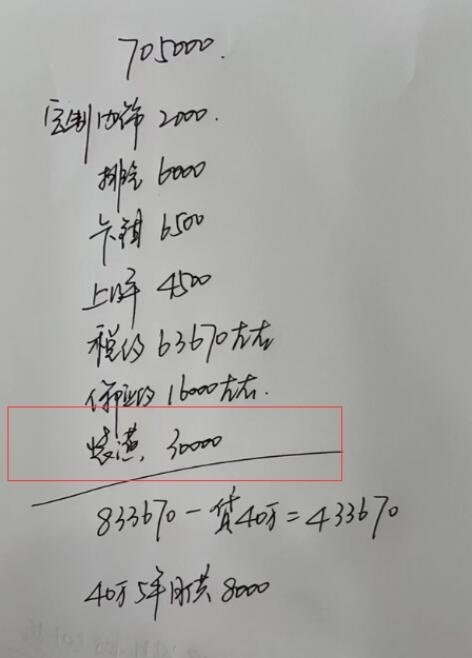 705000.
定制内饰 2000.
排 6000
卡钳 6500
上牌 4500
税约 63670左右
保险约 16000左右.
装潢、30000
833670-贷40万=433670
40万5年月供8000